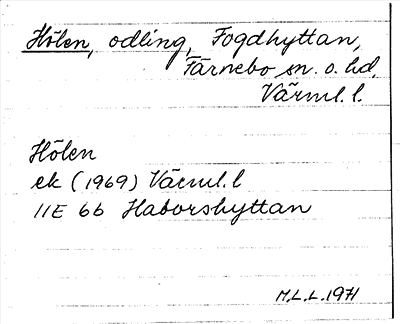 Hölen, odling, Fogdhyttan,
Färnebo sn. o. hd.
Värml. l.
Hölen
ek (1969) Värml. l
11E 6b Haborshyttan
M.L.L. 1971